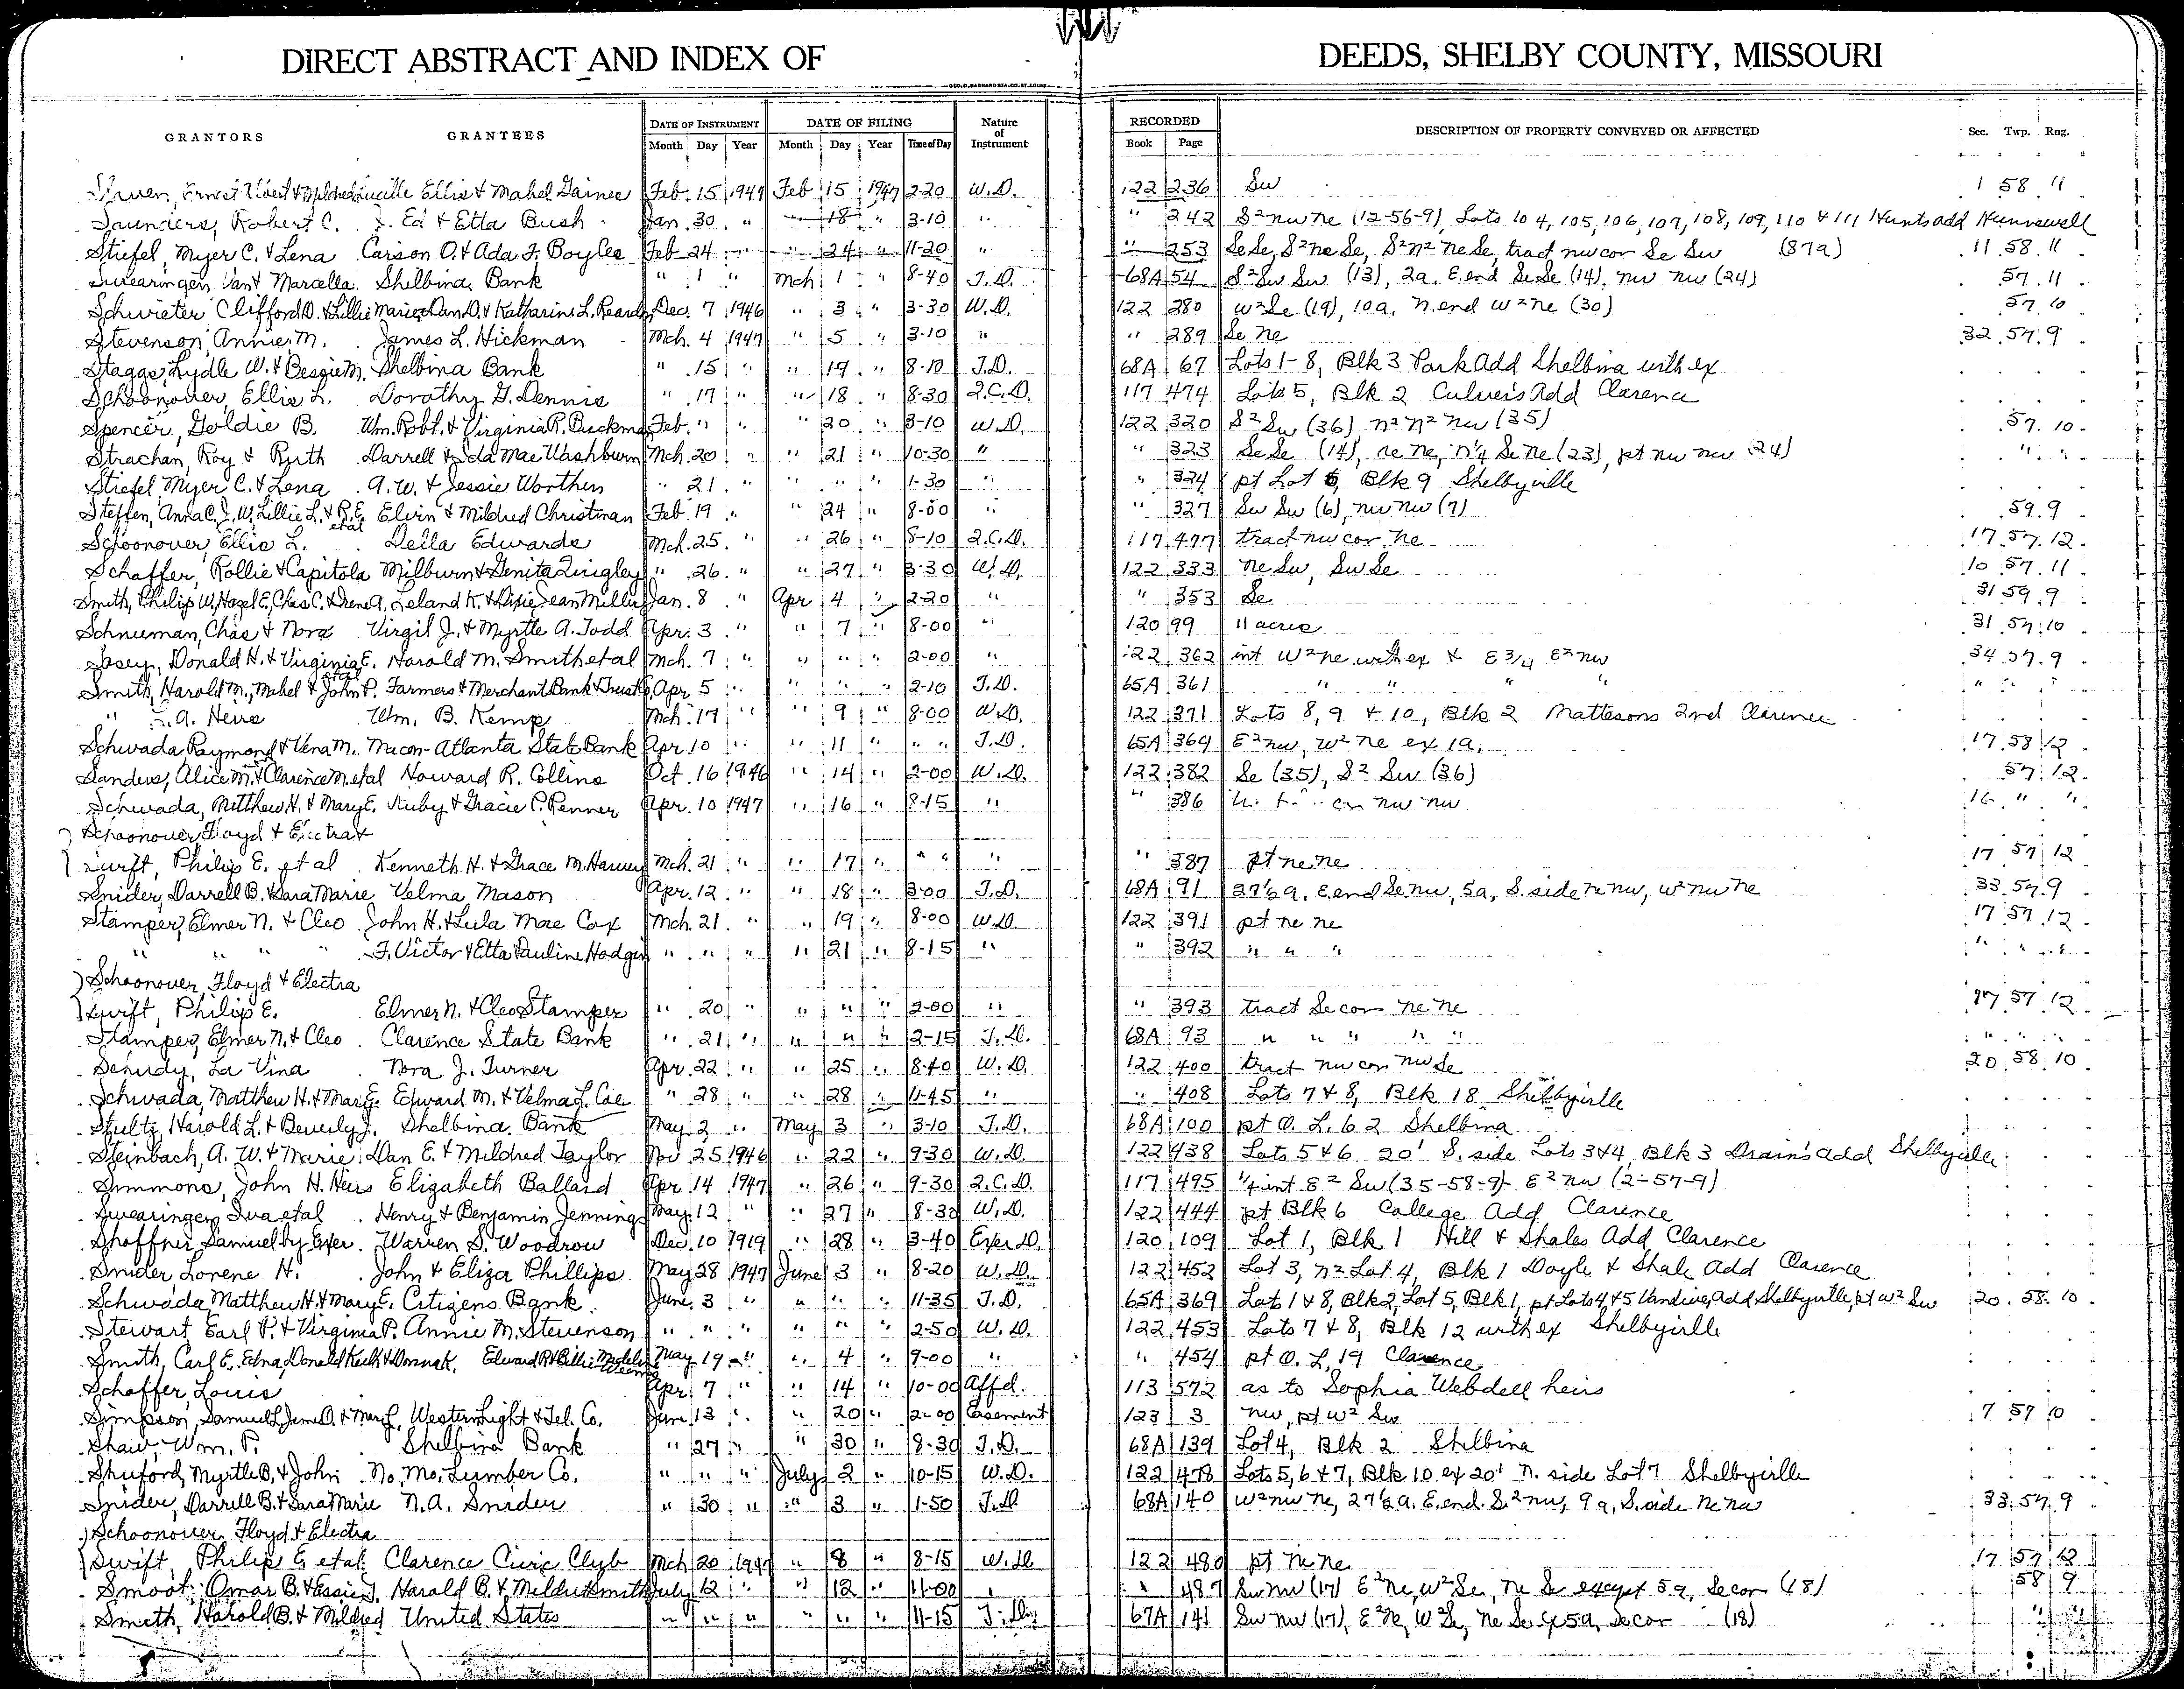 DIRECT ABSTRACT AND INDEX OF DEEDS, SHELBY COUNTY, MISSOURI
GEO. D. BARNARD STA. CO. ST. LOUIS
GRANTORS GRANTEES DATE OF INSTRUMENT DATE OF FILING Nature of Instrument RECORDED DESCRIPTION OF PROPERTY CONVEYED OR AFFECTED Sec. Twp. Rng.
Month Day Year Month Day Year Time of Day Book Page
Ernest Lucille Ellis & Mabel Gaines Feb. 15 1947 Feb 15 1947 2-20 W.D. 122 236 Sw 1 58 11
Saunders, Robert C. J. Ed & Etta Bush Jan. 30 " " 18 " 3-10 " " 242 S²nw ne (12-56-9) Lots 104, 105, 106, 107, 108, 109, 110 & 111 Hunts add Hunnewell
Stiefel, Myer C. & Lena Carson O. & Ada F. Boyles Feb 24 " " 24 " 11-20 " " 253 Se Se, S²ne Se, S²n² ne Se, tract nw cor Se Sw (87a) 11 58 11
Swearingen, Van & Marcella Shelbina Bank " 1 " Mch. 1 " 8-40 T.D. 68A 54 S²Sw Sw (13), 2a. E. end Se Se (14), nw nw (24) 57 11
Schwieter, Clifford D. & Lillie Marie Dan D. & Katharine L. Dec. 7 1946 " 3 " 3-30 W.D. 122 280 w²Se (19), 10a. n. end w²ne (30) 57 10
Stevenson, Annie M. James L. Hickman Mch. 4 1947 " 5 " 3-10 " " 289 Se ne 32 57 9
Staggs, Lydle W. & Bessie M. Shelbina Bank " 15 " " 19 " 8-10 T.D. 68A 67 Lots 1-8, Blk 3 Park Add Shelbina with ex
Schoonover, Ellis L. Dorothy G. Dennis " 17 " " 18 " 8-30 Q.C.D. 117 474 Lots 5, Blk 2 Culver's Add Clarence
Spencer, Goldie B. Wm. Robt. & Virginia R. Buckman Feb. " " " 20 " 3-10 W.D. 122 320 S²Sw (36) n²n²nw (35) 57 10
Strachan, Roy & Ruth Darrell & Ida Mae Washburn Mch. 20 " " 21 " 10-30 " " 323 Se Se (14), ne ne, n¼ Se ne (23), pt nw nw (24) " "
Stiefel Myer C. & Lena A.W. & Jessie Worthen " 21 " " " " 1-30 " " 324 pt Lot 6, Blk 9 Shelbyville
Steffen, Anna C., J.W., Lillie L. & R.E. etal Elvin & Mildred Christman Feb. 19 " " 24 " 8-00 " " 327 Sw Sw (6), nw nw (7) 59 9
Schoonover, Ellis L. Della Edwards Mch. 25 " " 26 " 8-10 Q.C.D. 117 477 tract nw cor ne 17 57 12
Schaffer, Rollie & Capitola Milburn & Lenita Lingley " 26 " " 27 " 3-30 W.D. 122 333 ne Sw, Sw Se 10 57 11
Smith, Philip W., Hazel E., Chas C. & Irene A. Leland K. & Dixie Jean Miller Jan. 8 " Apr 4 " 2-20 " " 353 Se 31 59 9
Schnieman, Chas & Nora Virgil J. & Myrtle A. Todd Apr. 3 " " 7 " 8-00 " 120 99 11 acres 31 57 10
Donald H. & Virginia E. etal Harold M. Smith etal Mch. 7 " " " " 2-00 " 122 362 int W²ne with ex & E ¾ E²nw 34 57 9
Smith, Harold M., Mabel & John P. Farmers & Merchants Bank & Trust Co Apr 5 " " " " 2-10 T.D. 65A 361 " " " " " " "
" A. Heirs Wm. B. Kemp Mch 17 " " 9 " 8-00 W.D. 122 371 Lots 8, 9 & 10, Blk 2 Mattesons 2nd Clarence
Schwada Raymond & Vena M. Macon-Atlanta State Bank Apr. 10 " " 11 " " " T.D. 65A 364 E²nw, w²ne ex 1a. 17 58 12
Sanders, Alice M. & Clarence M. etal Howard R. Collins Oct. 16 1946 " 14 " 2-00 W.D. 122 382 Se (35), S² Sw (36) 57 12
Schwada, Matthew H. & Mary E. Ruby & Gracie P. Penner Apr. 10 1947 " 16 " 8-15 " " 386 cor nw nw 16 " "
Schoonover, Floyd & Electra
Swift, Philip E. et al Kenneth H. & Grace M. Harvey Mch. 21 " " 17 " " " " " 387 pt ne ne 17 57 12
Snider, Darrell B. & Sara Marie Velma Mason Apr. 12 " " 18 " 3-00 T.D. 68A 91 27½a. E. end Se nw, 5a, S. side ne nw, w²nw ne 33 57 9
Stamper, Elmer N. & Cleo John H. & Lula Mae Cox Mch 21 " " 19 " 8-00 W.D. 122 391 pt ne ne 17 57 12
" " " F. Victor & Etta Pauline Hodges " " " " 21 " 8-15 " " 392 " " " " " "
Schoonover, Floyd & Electra
Swift, Philip E. Elmer N. & Cleo Stamper " 20 " " " " 2-00 " " 393 tract Se cor ne ne 17 57 12
Stamper, Elmer N. & Cleo Clarence State Bank " 21 " " " " 2-15 T.D. 68A 93 " " " " " " " "
La Vina Nora J. Turner Apr. 22 " " 25 " 8-40 W.D. 122 400 tract nw cor nw Se 20 58 10
Schwada, Matthew H. & Mary E. Edward M. & Velma L. Coe " 28 " " 28 " 11-45 " " 408 Lots 7 & 8, Blk 18 Shelbyville
Stultz, Harold L. & Beverly J. Shelbina Bank May 2 " May 3 " 3-10 T.D. 68A 100 pt O.L. 62 Shelbina
Steinbach, A.W. & Marie Dan E. & Mildred Taylor Nov 25 1946 " 22 " 9-30 W.D. 122 438 Lots 5 & 6 20' S. side Lots 3 & 4, Blk 3 Drain's Add Shelbyville
Simmons, John H. Heirs Elizabeth Ballard Apr 14 1947 " 26 " 9-30 Q.C.D. 117 495 ¼ int E² Sw (35-58-9) E² nw (2-57-9)
Swearingen, Iva etal Henry & Benjamin Jennings May 12 " " 27 " 8-30 W.D. 122 444 pt Blk 6 College Add Clarence
Shoffner, Samuel by Exer. Warren S. Woodrow Dec. 10 1919 " 28 " 3-40 Exer D. 120 109 Lot 1, Blk 1 Hill & Shales Add Clarence
Snider Lorene H. John & Eliza Phillips May 28 1947 June 3 " 8-20 W.D. 122 452 Lot 3, n² Lot 4, Blk 1 Doyle & Shale Add Clarence
Schwada, Matthew H. & Mary E. Citizens Bank June 3 " " " " 11-35 T.D. 65A 369 Lots 1 & 8, Blk 2, Lot 5, Blk 1, pt Lots 4 & 5 Vandiver Add Shelbyville, pt w² Sw 20 58 10
Stewart, Earl P. & Virginia P. Annie M. Stevenson " " " " " " 2-50 W.D. 122 453 Lots 7 & 8, Blk 12 with ex Shelbyville
Smith, Carl E., Edna, Donald Keith & Donna K. Edward P. & Billie Madeline Weems May 19 " " 4 " 9-00 " " 454 pt O.L. 19 Clarence
Schaffer, Louis Apr 7 " " 14 " 10-00 Affd. 113 572 as to Sophia Webdell heirs
Simpson, Samuel L., James O. & Mary L. Western Light & Tel. Co. June 13 " " 20 " 2-00 Easement 123 3 nw, pt w² Sw 7 57 10
Shaw, Wm. P. Shelbina Bank " 27 " " 30 " 8-30 T.D. 68A 139 Lot 4, Blk 2 Shelbina
Shuford, Myrtle B. & John No. Mo. Lumber Co. " " " July 2 " 10-15 W.D. 122 478 Lots 5, 6 & 7, Blk 10 ex 20' n. side Lot 7 Shelbyville
Snider, Darrell B. & Sara Marie N.A. Snider " 30 " " 3 " 1-50 T.D. 68A 140 w²nw ne, 27½a. E. end S²nw, 9a, S. side ne nw 33 57 9
Schoonover, Floyd & Electra
Swift, Philip E. etal Clarence Civic Club Mch 20 1947 " 8 " 8-15 W.D. 122 480 pt ne ne 17 57 12
Smoot, Omar B. & Essie J. Harold B. & Mildred Smith July 12 " " 12 " 11-00 " " 487 Sw nw (17) E²ne, w²Se, ne Se except 5a, Se cor (18) 58 9
Smith, Harold B. & Mildred United States " " " " " " 11-15 T.D. 67A 141 Sw nw (17), E²ne, w²Se, ne Se ex 5a, Se cor (18) " "